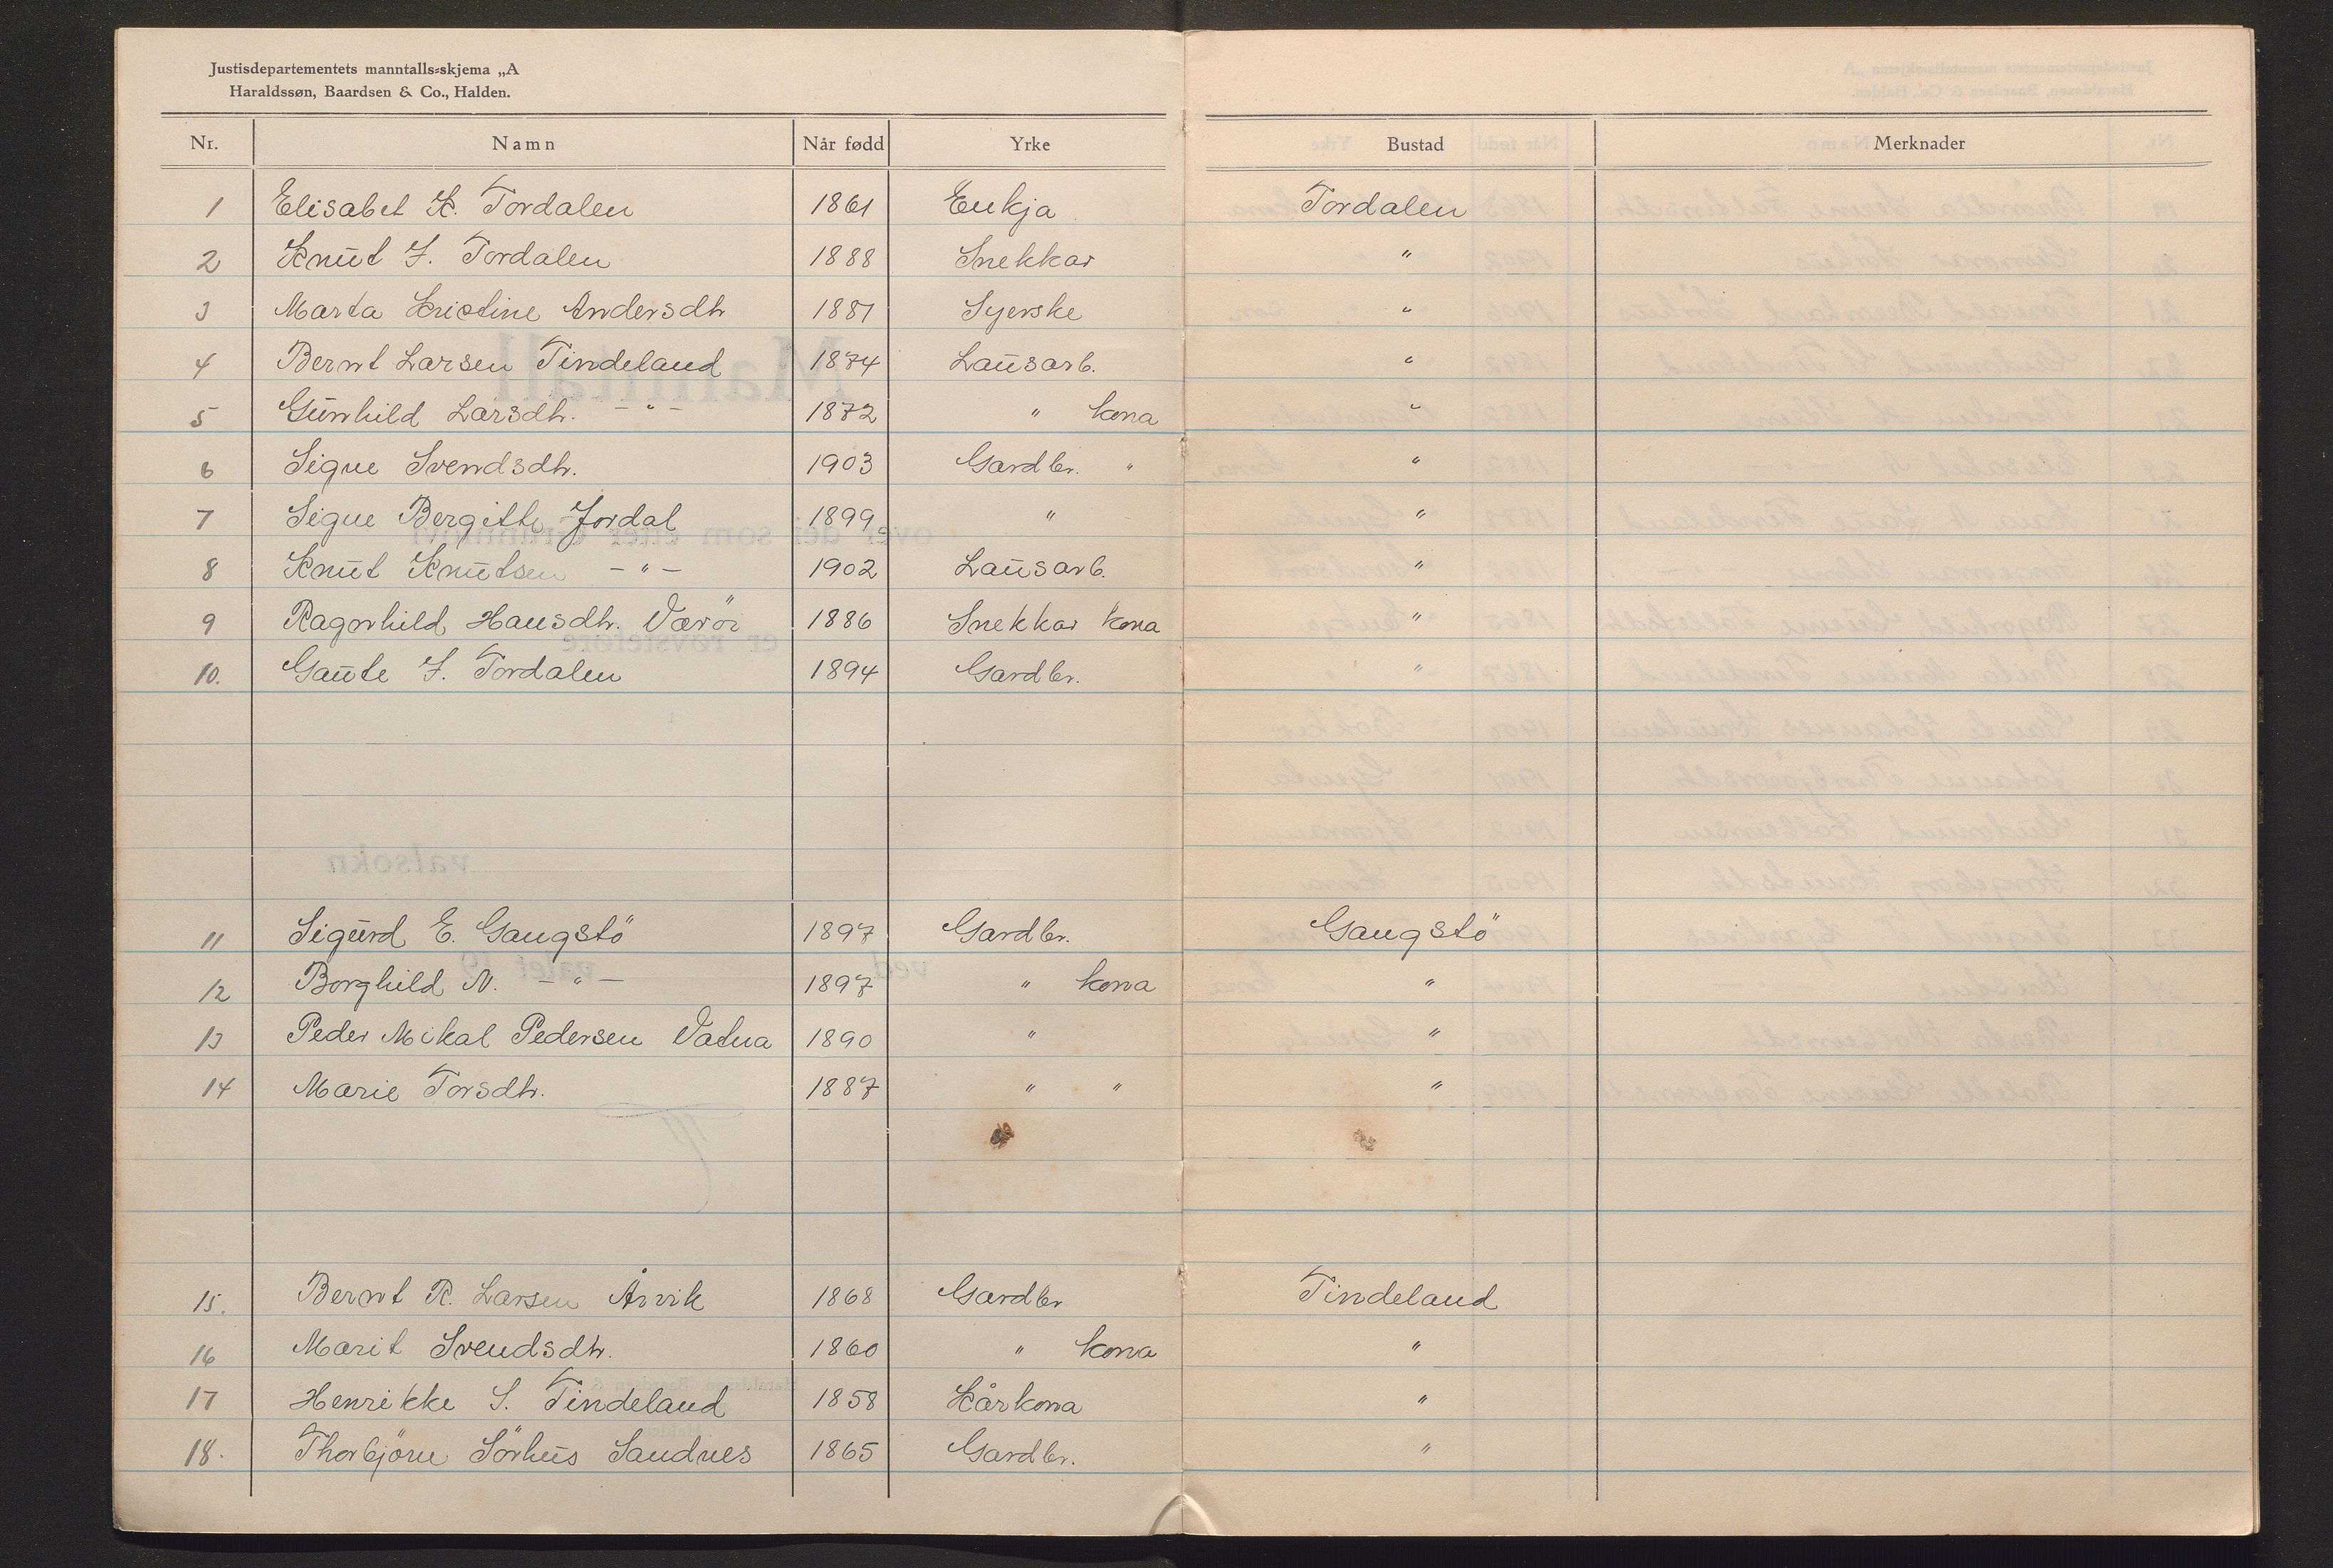 Justisdepartementets manntalls-skjema „A
Haraldssøn, Baardsen & Co., Halden.
Nr. Namn Når fødd Yrke Bustad Merknader
1 Elisabet K. Tordalen 1861 Enkja Tordalen
2 Knut J. Tordalen 1888 Snekkar "
3 Marta Kristine Andersdtr 1881 Syerske "
4 Bernt Larsen Tindeland 1874 Lausarb. "
5 Gunhild Larsdtr. – " – 1872 " kona "
6 Signe Svendsdtr. 1903 Gardbr. " "
7 Signe Bergitte Jordal 1899 " "
8 Knut Knutsen – " – 1902 Lausarb. "
9 Ragnhild Hansdtr. Værøi 1886 Snekkar kona "
10. Gaute J. Tordalen 1894 Gardbr. "
11 Sigurd E. Gangstö 1897 Gardbr. Gangstö
12 Borghild N. – " – 1897 " kona "
13 Peder Mikal Pedersen Vatna 1890 " "
14 Marie Torsdtr. 1887 " " "
15. Bernt R. Larsen Årvik 1868 Gardbr Tindeland
16 Marit Svendsdtr. 1860 " kona "
17 Henrikke S. Tindeland 1858 Kårkona "
18. Thorbjörn Sörhus Sandnes 1865 Gardbr. "